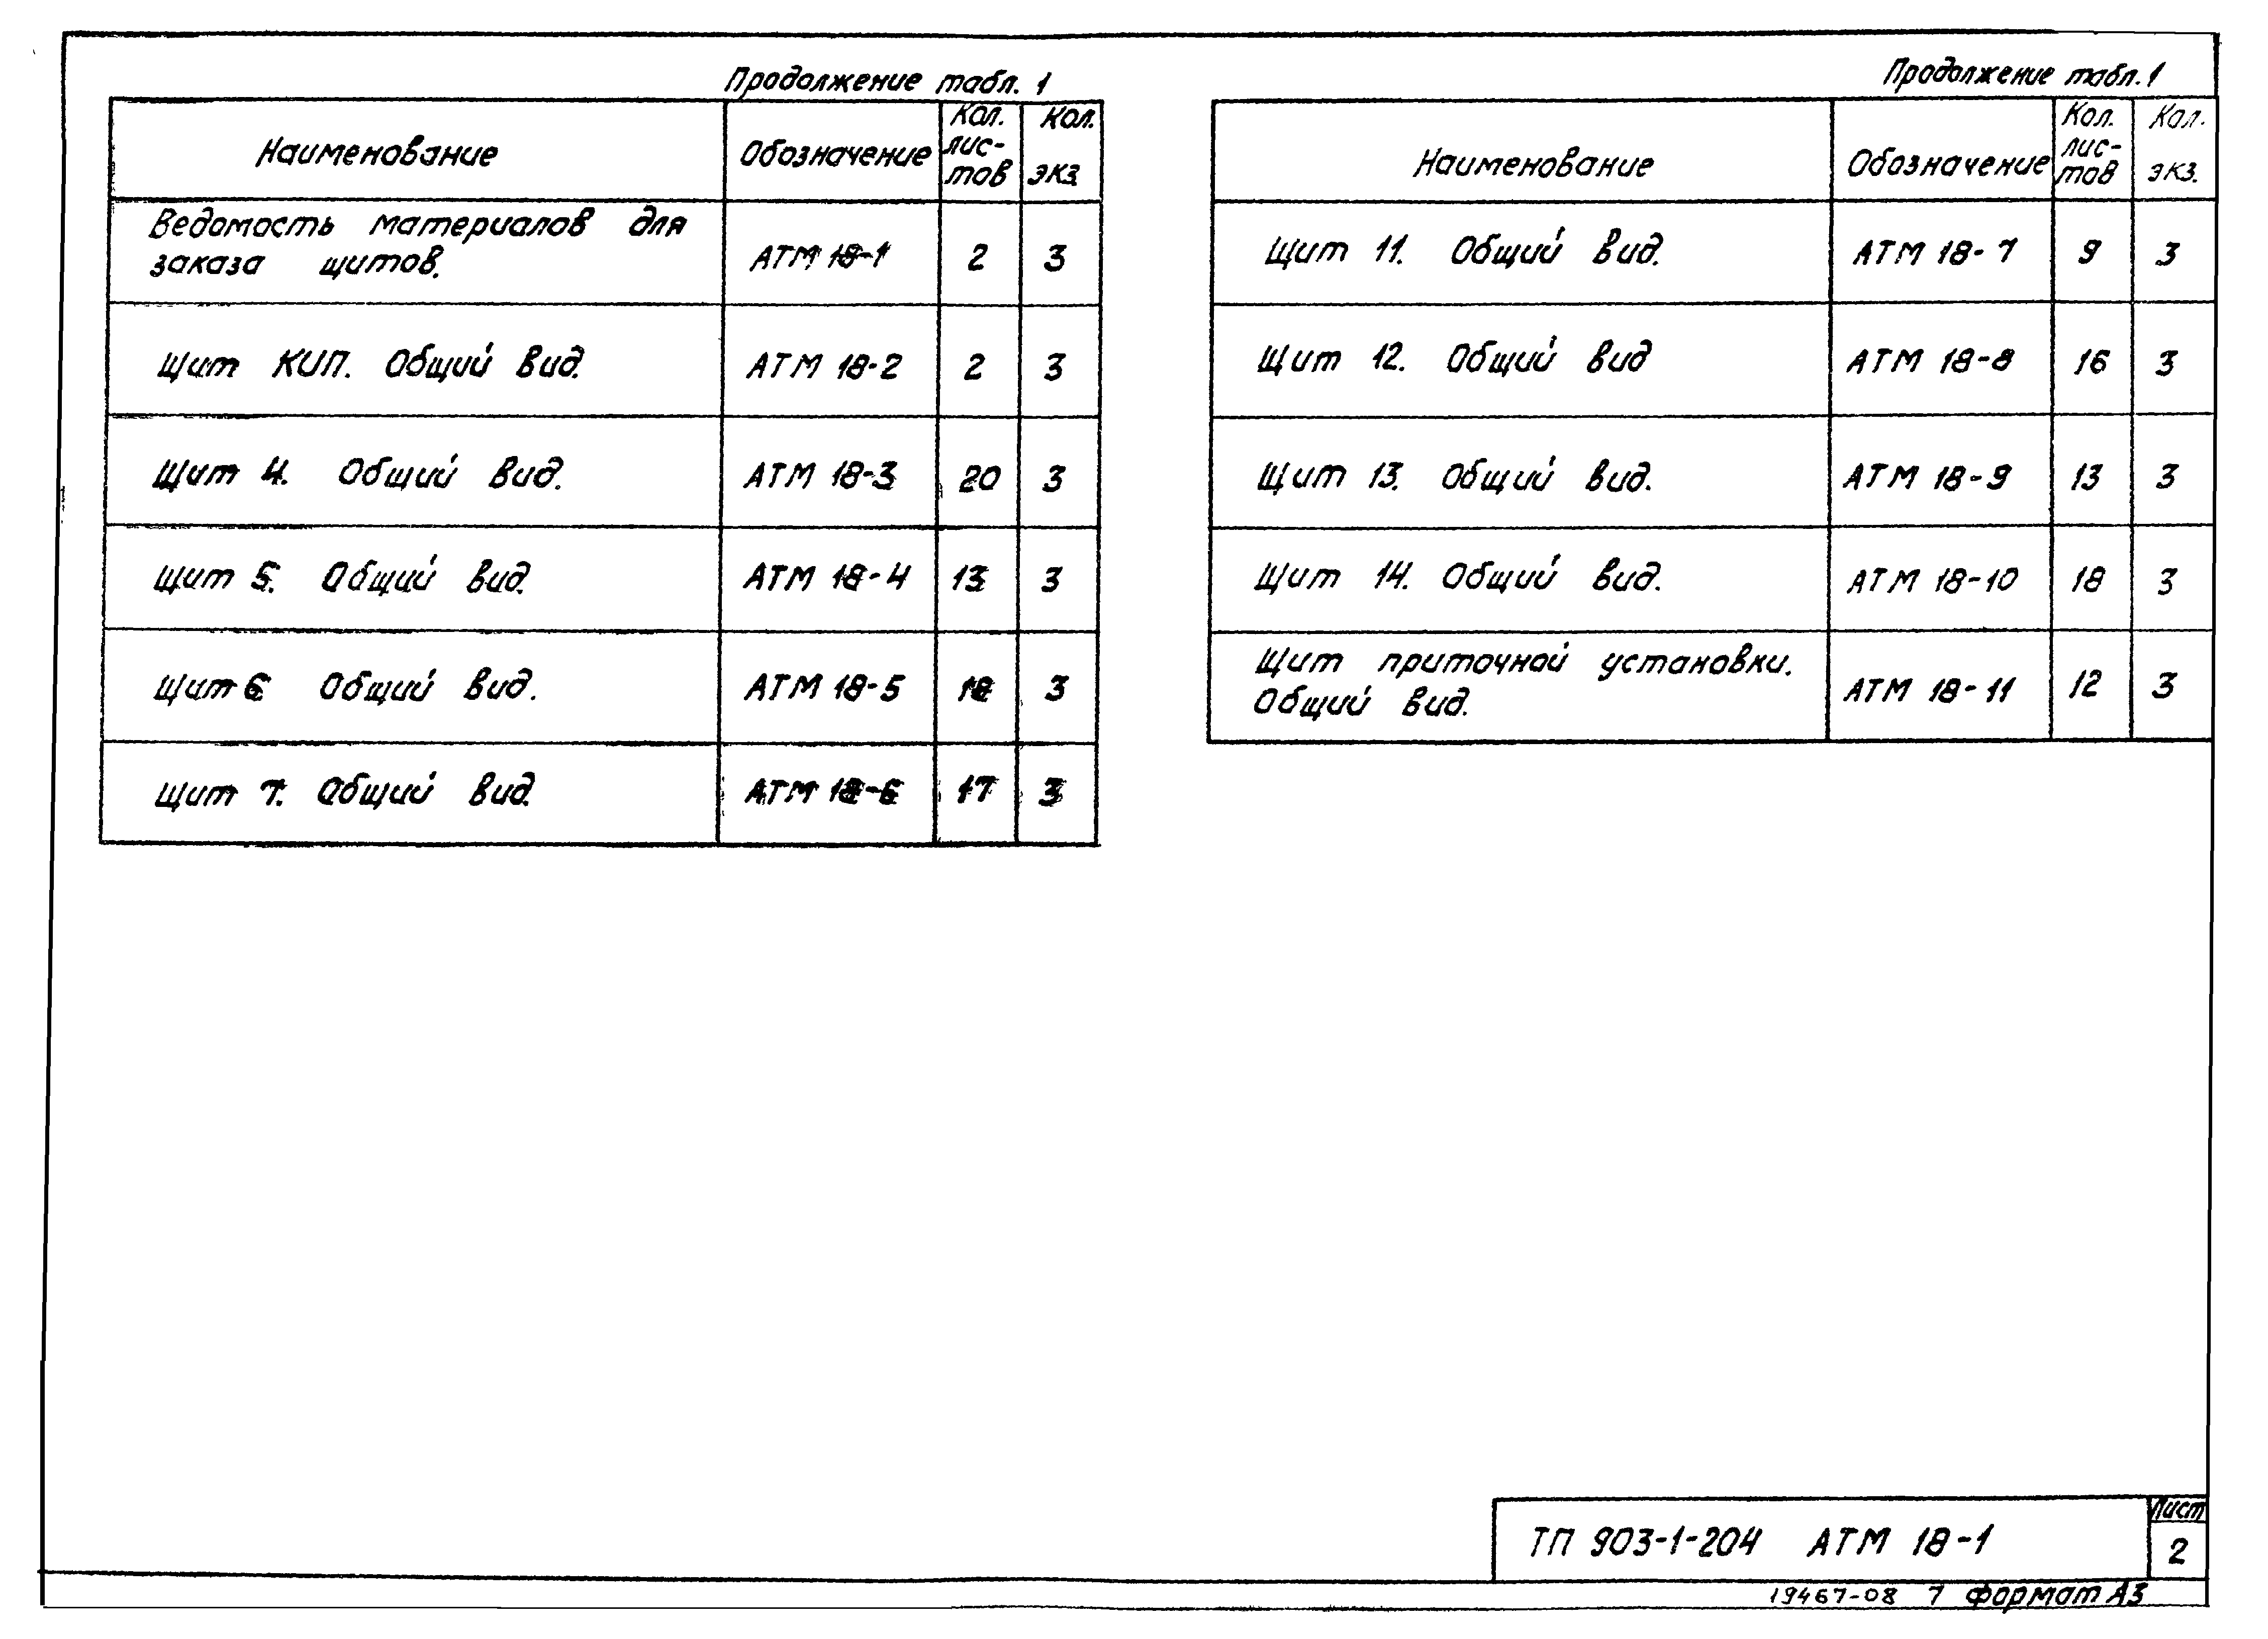 Продолжение табл. 1
Наименование Обозначение Кол. лис-тов Кол. экз.
Ведомость материалов для
заказа щитов. АТМ 18-1 2 3
Щит КИП. Общий вид. АТМ 18-2 2 3
Щит 4. Общий вид. АТМ 18-3 20 3
Щит 5. Общий вид. АТМ 18-4 13 3
Щит 6 Общий вид. АТМ 18-5 18 3
Щит 7. Общий вид. АТМ 18-6 17 3
Продолжение табл. 1
Наименование Обозначение Кол. лис-тов Кол. экз.
Щит 11. Общий вид. АТМ 18-7 9 3
Щит 12. Общий вид АТМ 18-8 16 3
Щит 13. Общий вид. АТМ 18-9 13 3
Щит 14. Общий вид. АТМ 18-10 18 3
Щит приточной установки.
Общий вид. АТМ 18-11 12 3
ТП 903-1-204 АТМ 18-1
Лист
2
19467-08 7 Формат А3